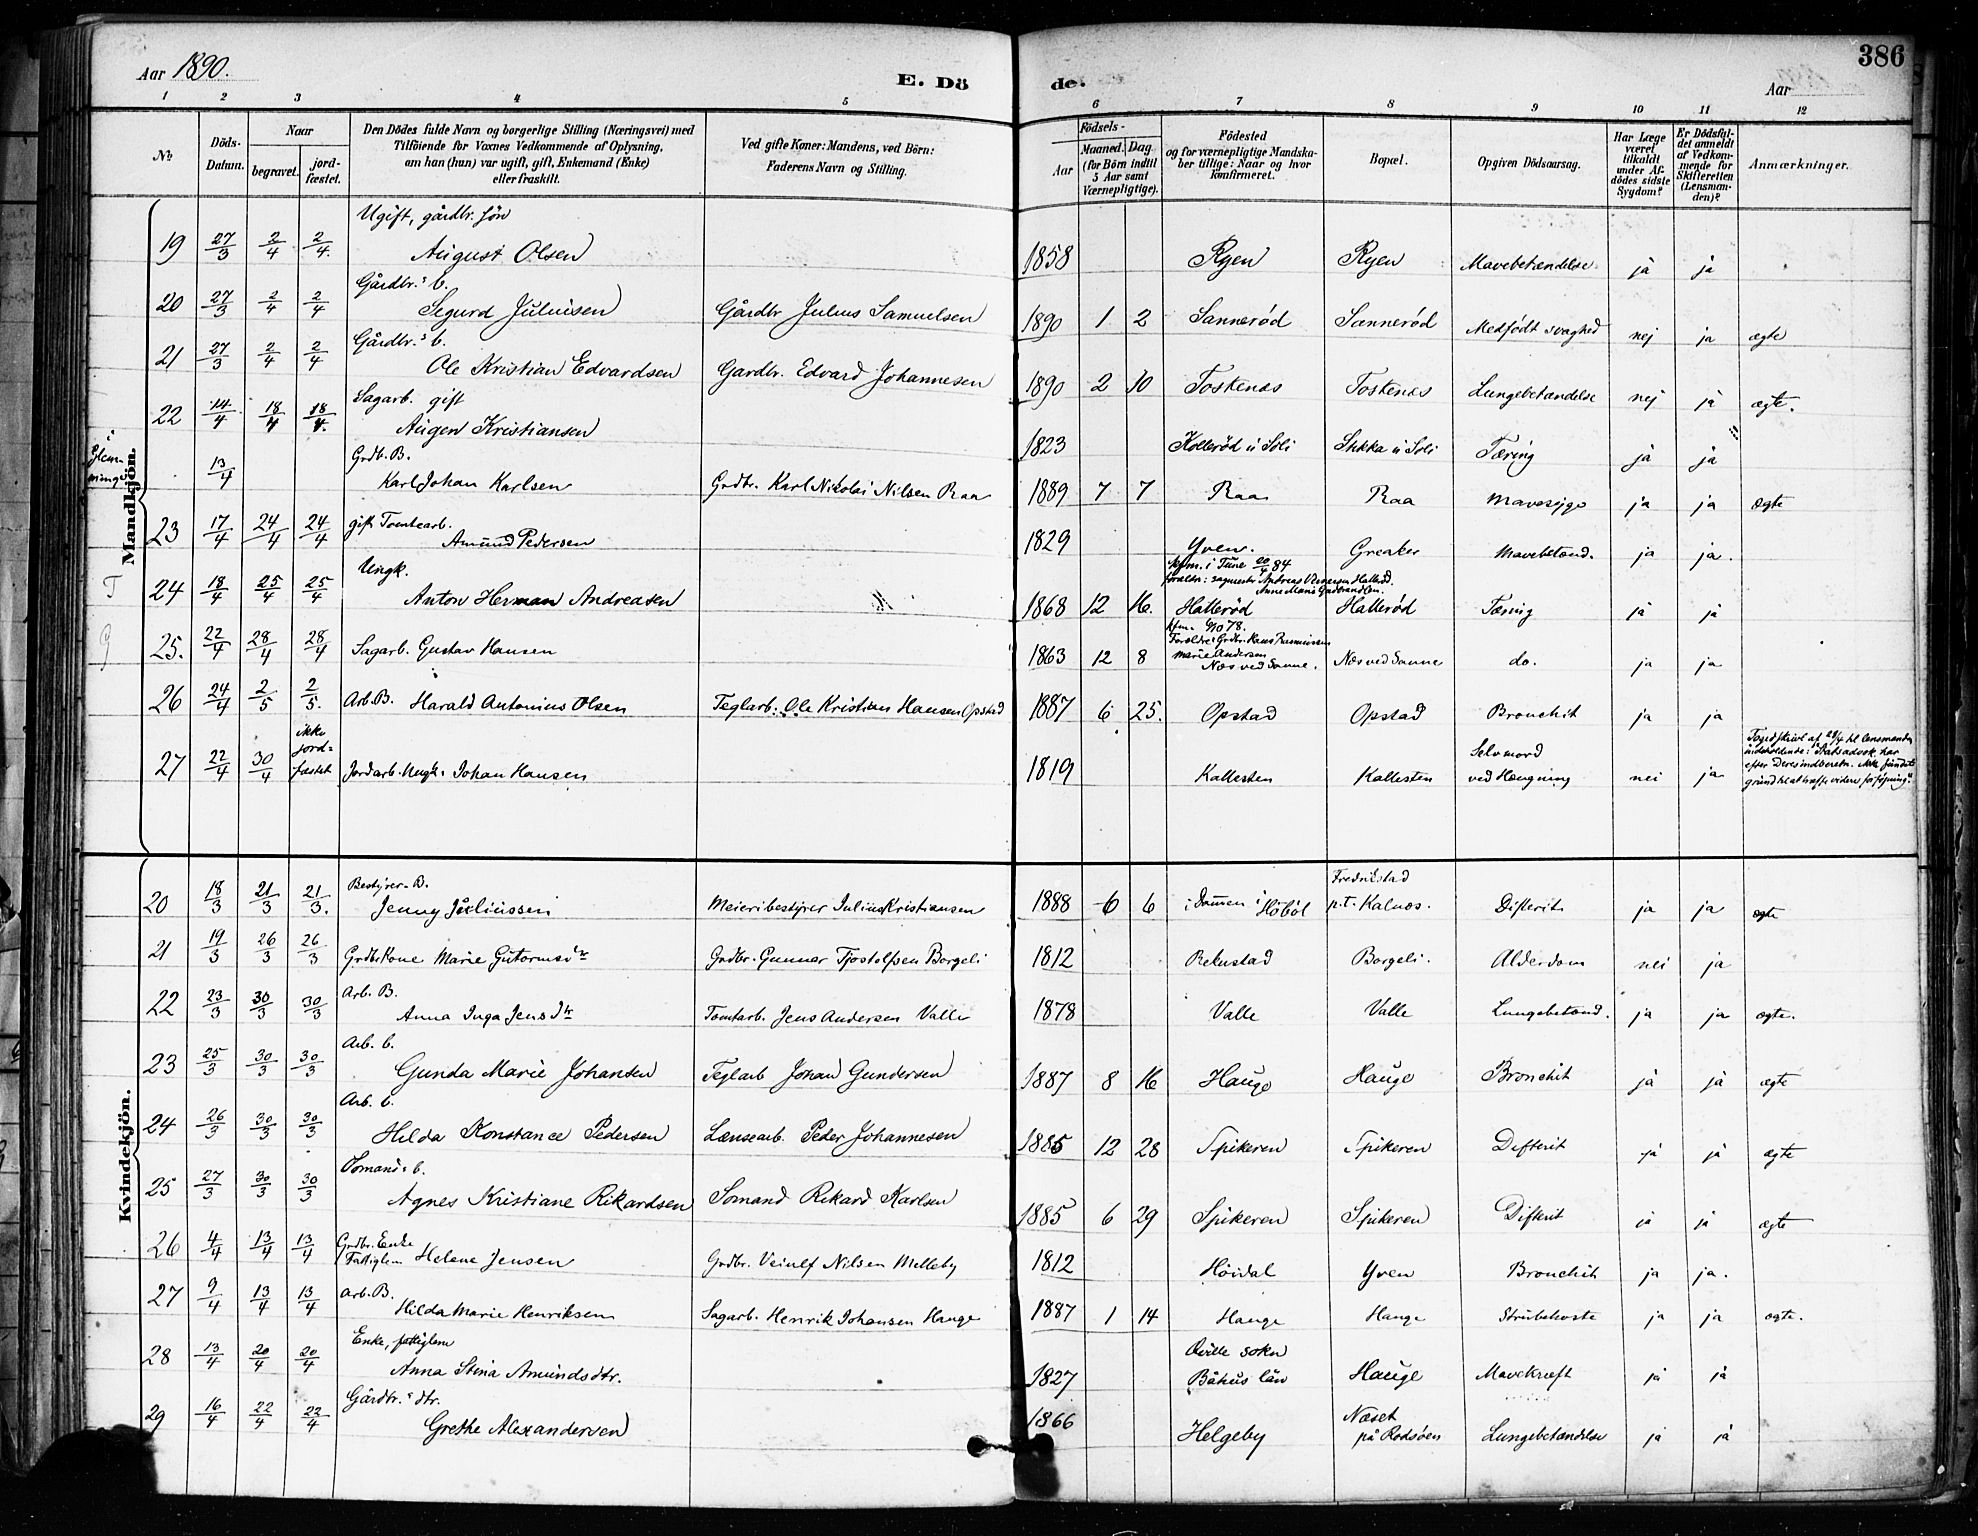 386
Aar 1890.
E. Dö
de.
Aar
1 2 3 4 5 6 7 8 9 10 11 12
No.
Döds-Datum.
Naar
begravet.
jord-fæstet.
Den Dödes fulde Navn og borgerlige Stilling (Næringsvei) med
Tilföiende for Voxnes Vedkommende af Oplysning,
om han (hun) var ugift, gift, Enkemand (Enke)
eller fraskilt.
Ved gifte Koner: Mandens, ved Börn:
Faderens Navn og Stilling.
Födsels-
Aar
Maaned. Dag
(for Börn indtil
5 Aar samt
Værnepligtige).
Födested
og for værnepligtige Mandska-
ber tillige: Naar og hvor
konfirmeret.
Bopæl.
Opgiven Dödsaarsag.
Har Læge
været
tilkaldt
under Af-
dödes sidste
Sygdom?
Er Dödsfal-
det anmeldt
af Vedkom-
mende for
Skifteretten
(Lensman-
den)?
Anmærkninger.
Mandkjön.
Ugift, gårdbr. sön
19 27/3 2/4 2/4. August Olsen 1858 Ryen Ryen Mavebetændelse. ja ja
Gårdbr.s b.
20 27/3 2/4 2/4 Segurd Juliusen Gårdbr Julius Samuelsen 1890 1 2 Sannerød Sannerød Medfødt svaghed nej ja ægte
Gårdbr.s b.
21 27/3 2/4 2/4 Ole Kristian Edvardsen Gardbr. Edvard Johannesen 1890 2 10 Toskenæs Toskenæs Lungebetændelse nej ja ægte.
Sagarb. gift
22 14/4 18/4 18/4. Augen Kristiansen 1823 Kollerød i Soli i Soli Tæring ja ja
i Glemminge
Grdb. B.
13/4 Karl Johan Karlsen Grdbr. Karl Nikolai Nilsen Raa 1889 7 7 Raa Raa Mavesyge ja ja ægte
gift Tomtearb.
23 17/4 24/4 24/4 Amund Pedersen 1829 Yven. Greaker Mavebetænd. ja ja.
Ungk.
Kfm. i Tune 20/4 84
T 24 18/4 25/4 25/4 Anton Herman Andreasen 1868 12 16. Hatterød Hatterød Tæring ja ja
Kfm. 78.
Forældre: Grdbr. Hans Rasmussen
Marie Andersen
G 25. 22/4 28/4 28/4 Sagarb. Gustav Hansen 1863 12 8 Næs ved Sanne. Næs ved Sanne do. ja ja
26 24/4 2/5 2/5. Arb. B. Harald Antonius Olsen Teglarb. Ole Kristian Hansen Opstad 1887 6 25. Opstad Opstad Bronchit ja ja
27 22/4 30/4 ikke jord-fæstet Jordarb. Ungk. Johan Hansen 1819 Kallesten Kallesten Selvmord ved Hængning nei ja
Kvindekjön.
Bestyrer. B.
Fredrikstad
20 18/3 21/3 21/3. Jenny Juliussen Meieribestyrer Julius Kristiansen 1888 6 6 i Høbøl p.t. Kalnæs. Difterit ja ja ægte
21 19/3 26/3 26/3 Grdbr. Kone Marie Gutormsdr Grdbr. Gunnar Tjostolfsen Borgeli 1812 Rekustad Borgeli. Alderdom nei ja
Arb. B.
22 23/3 30/3 30/3 Anna Inga Jensdtr Tomtarb. Jens Andersen Valle 1878 Valle Valle Lungebetænd. ja ja ægte.
Arb. b.
23 25/3 30/3 30/3 Gunda Marie Johansen Teglarb Johan Gundersen 1887 8 16 Hauge Hauge Bronchit ja ja ægte
Arb. b.
24 26/3 30/3 30/3 Hilda Konstance Pedersen Lænsearb. Peder Johannesen 1885 12 28 Spikeren Spikeren Difterit ja ja ægte
Sømands b.
25 27/3 30/3 30/3 Agnes Kristiane Rikardsen Sømand Rikard Karlsen 1885 6 29 Spikeren Spikeren Difterit ja ja ægte
Grdbr. Enke
26 4/4 13/4 13/4 Fattiglem Helene Jensen Grdbr. Veiulf Nilsen Melleby 1812 Høidal Yven Bronchit ja ja.
Arb. B.
27 9/4 13/4 13/4 Hilda Marie Henriksen Sagarb. Henrik Johansen Hauge 1887 1 14 Hauge Hauge Strubehoste ja ja ægte.
Enke, fattiglem
28 13/4 20/4 20/4 Anna Stina Amundsdtr. 1827 Qville sokn Båhus län Hauge Mavekræft ja ja
Gårdbr.s dtr.
29 16/4 22/4 22/4 Grethe Alexandersen 1866 Helgeby Næset på Rodsøen Lungebetændelse ja ja